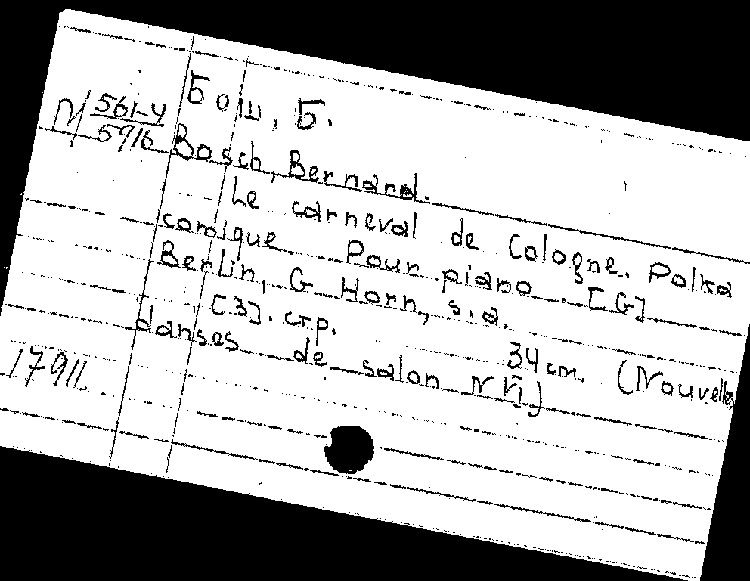 N/ 561-4
5916
Бош, Б.
Bosch, Bernard.
Le carneval de Cologne. Polka
comique. Pour piano. [G]
Berlin, G Horn, s.a.
[3]. стр. 34 cm. (Nouvelles
danses de salon N
17911